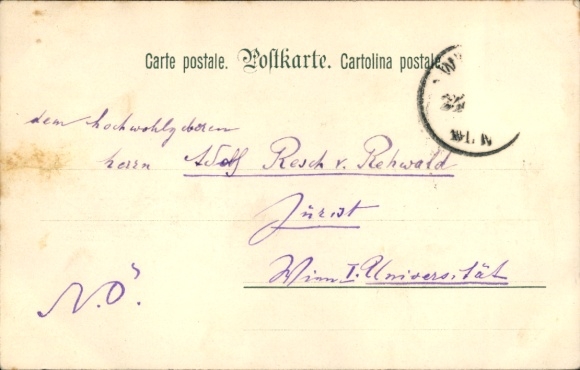 Carte postale. Postkarte. Cartolina postale.
dem hochwohlgeboren
Herrn Adolf Resch v. Rehwald
Jurist
Wien I. Universität
N.Ö.
WIEN